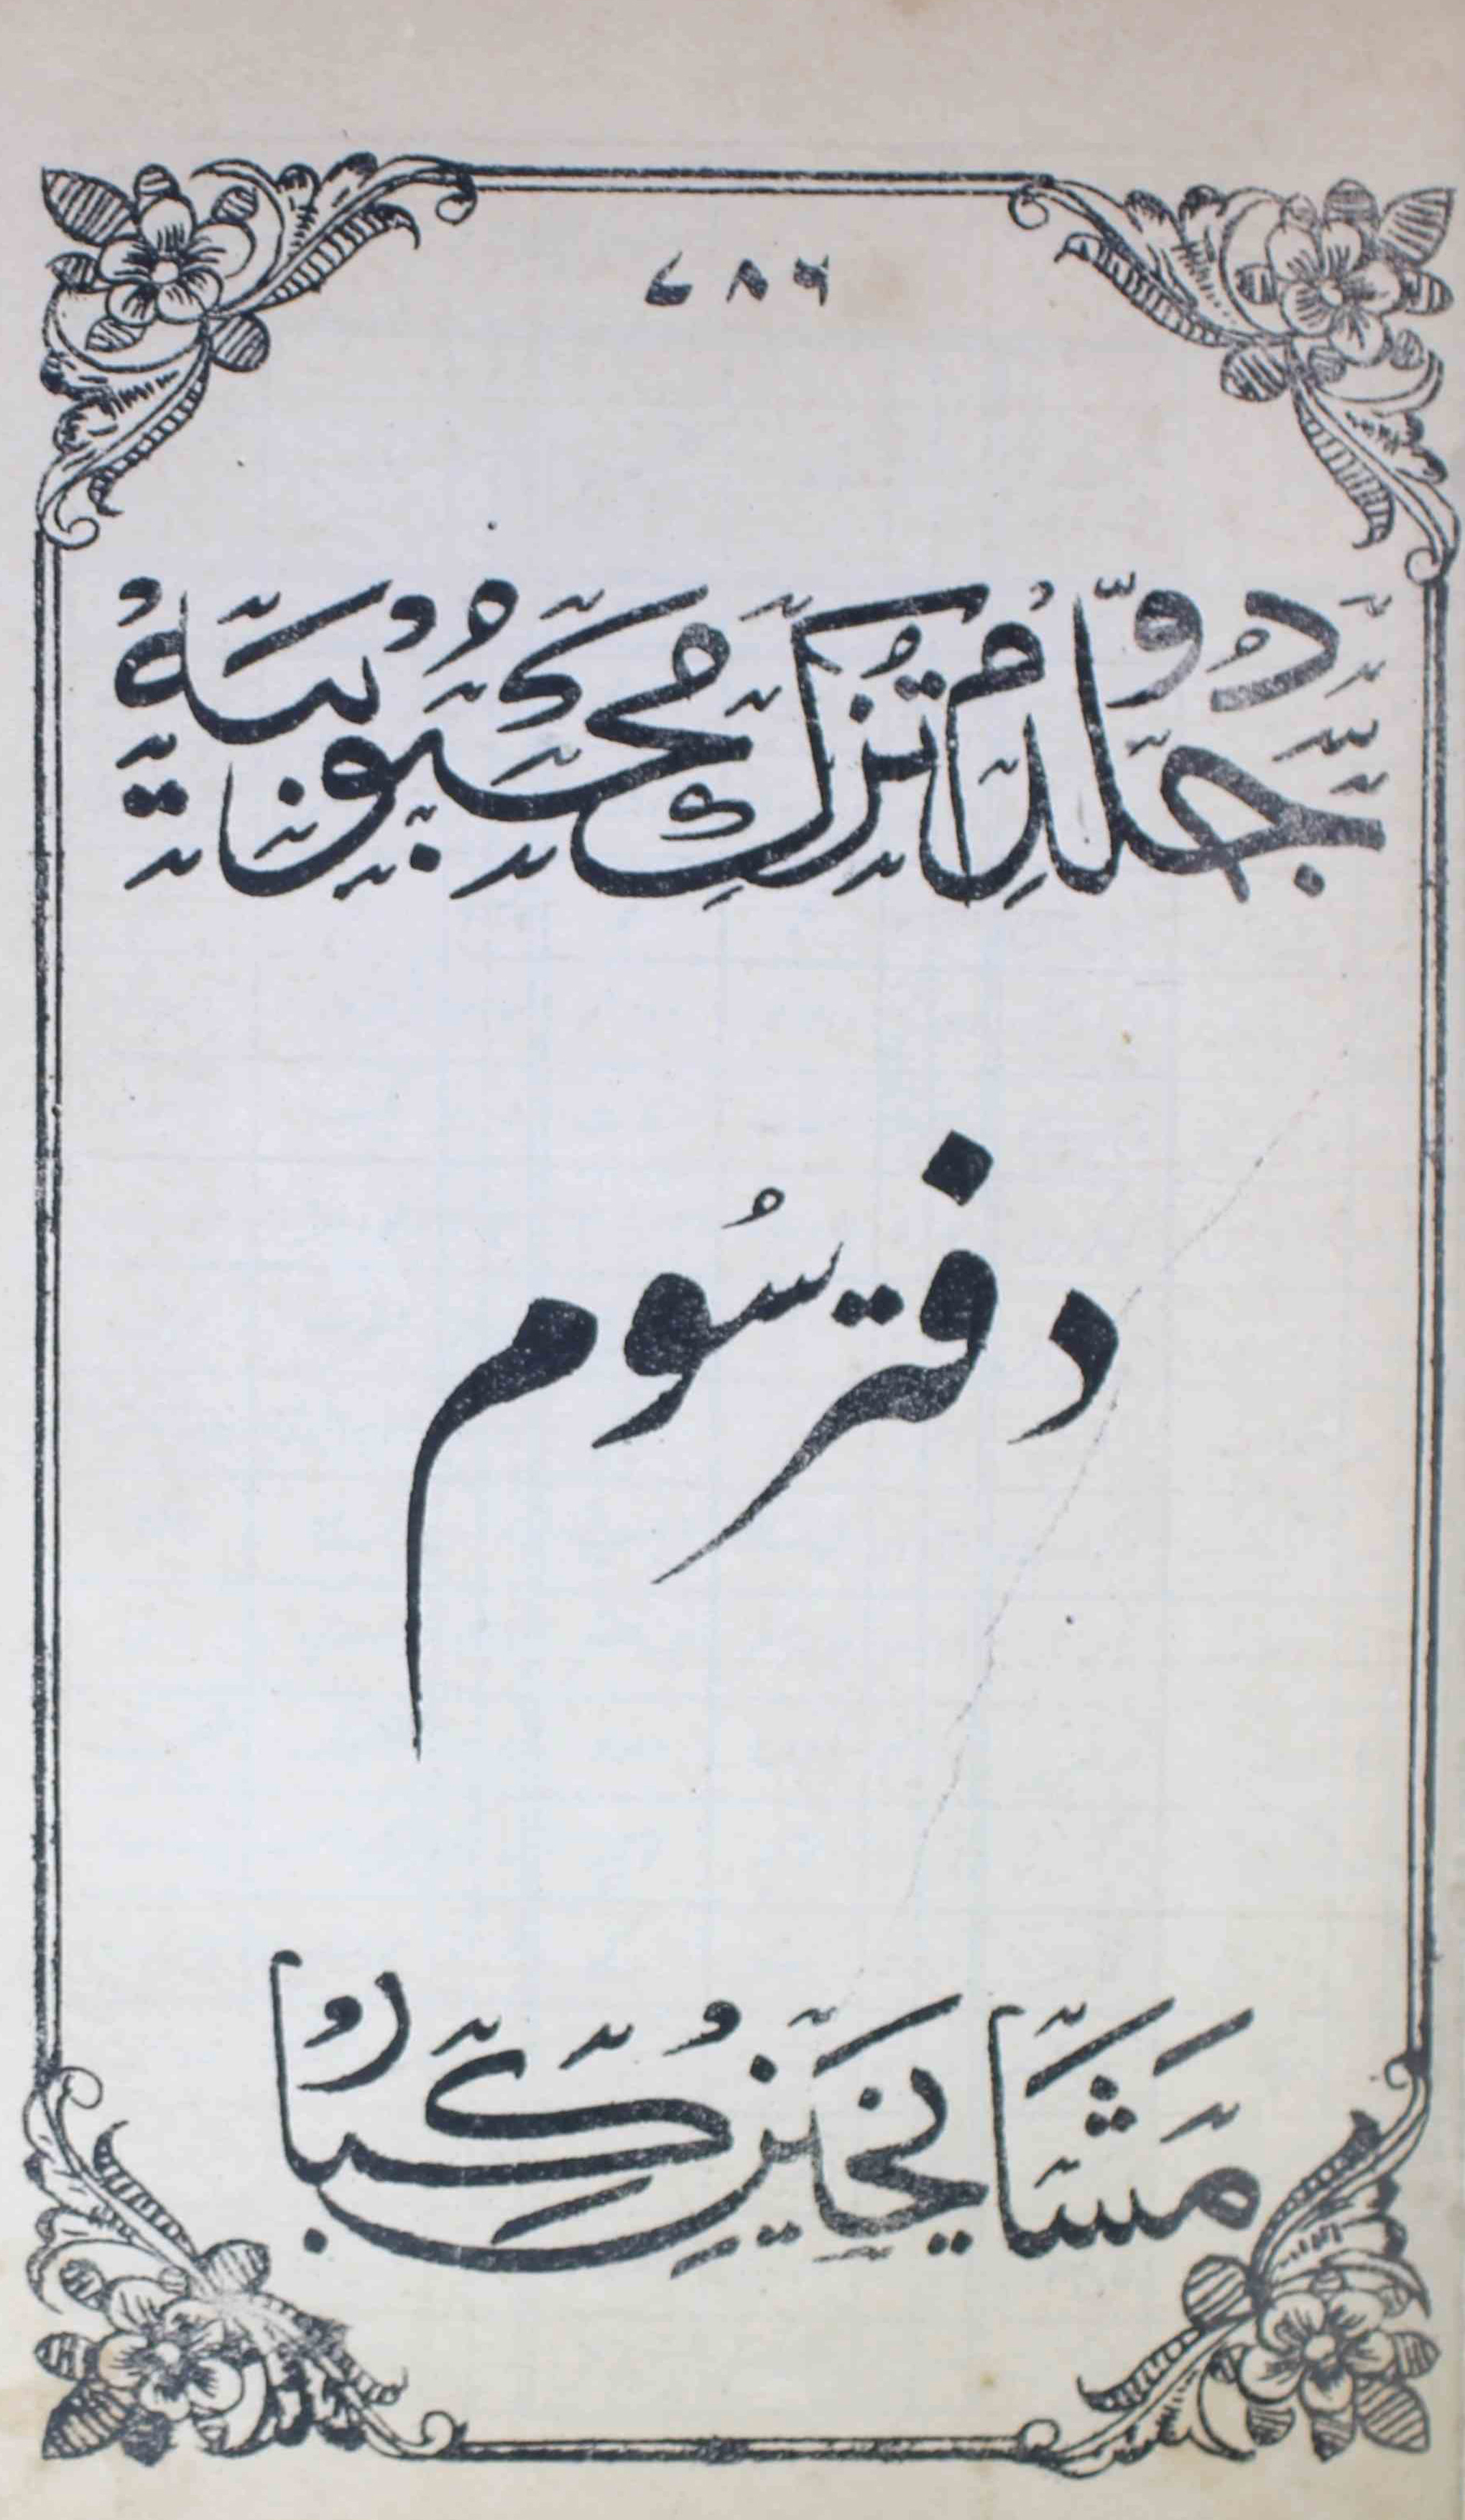 ۷۸۶
جلد دوم تزک محبوبیہ
دفتر سوم
مشایخین کبار